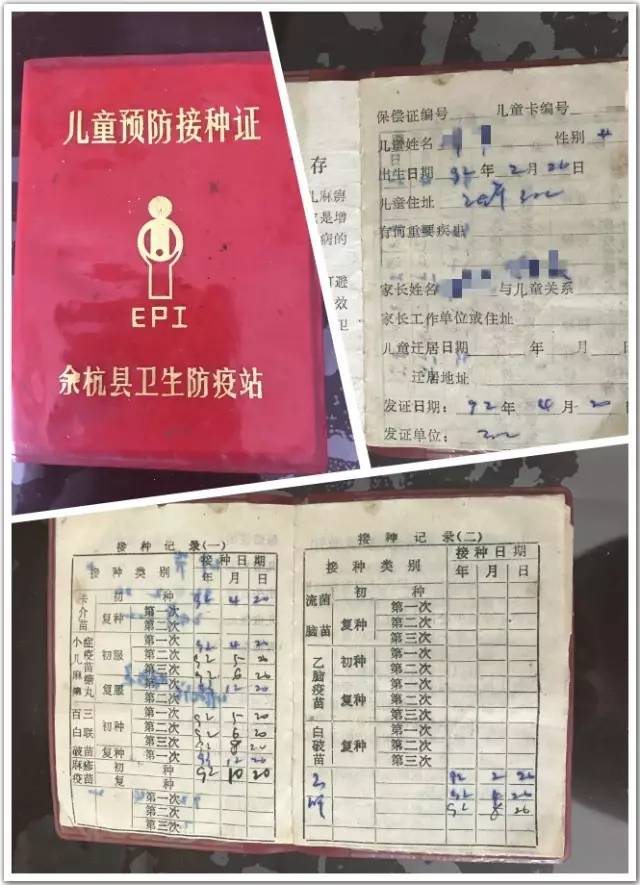 儿童预防接种证
EPI
余杭县卫生防疫站
存
儿麻痹
是增
病的
避
效
卫
保偿证编号 儿童卡编号
儿童姓名 性别 女
出生日期 92 年 2 月 26 日
儿童住址
有何重要疾患
家长姓名 与儿童关系
家长工作单位或住址
儿童迁居日期 年 月
迁居地址
发证日期: 92 年 4 月 20
发证单位:
接种记录(一)
接种类别 接种日期
年 月 日
卡介苗 初种 92 4 20
复种 第一次
第二次
小儿麻痹糖丸疫苗 初服 第一次 92 4 20
第二次 92 5 20
第三次 92 6 20
复服 第一次 92 12 20
第二次
百白破三联菌苗 初种 第一次 92 5 20
第二次 92 6 20
第三次 92 8 20
复种 第一次 92 12 20
麻疹疫苗 初种 92 10 20
复种
第一次
第二次
第三次
接种记录(二)
接种类别 接种日期
年 月 日
流脑菌苗 初种
复种 第一次
第二次
第三次
乙脑疫苗 初种 第一次
第二次
复种 第一次
第二次
第三次
白破菌苗 复种 第一次
第二次
第三次
乙肝 92 2 26
92 26
92 8 26